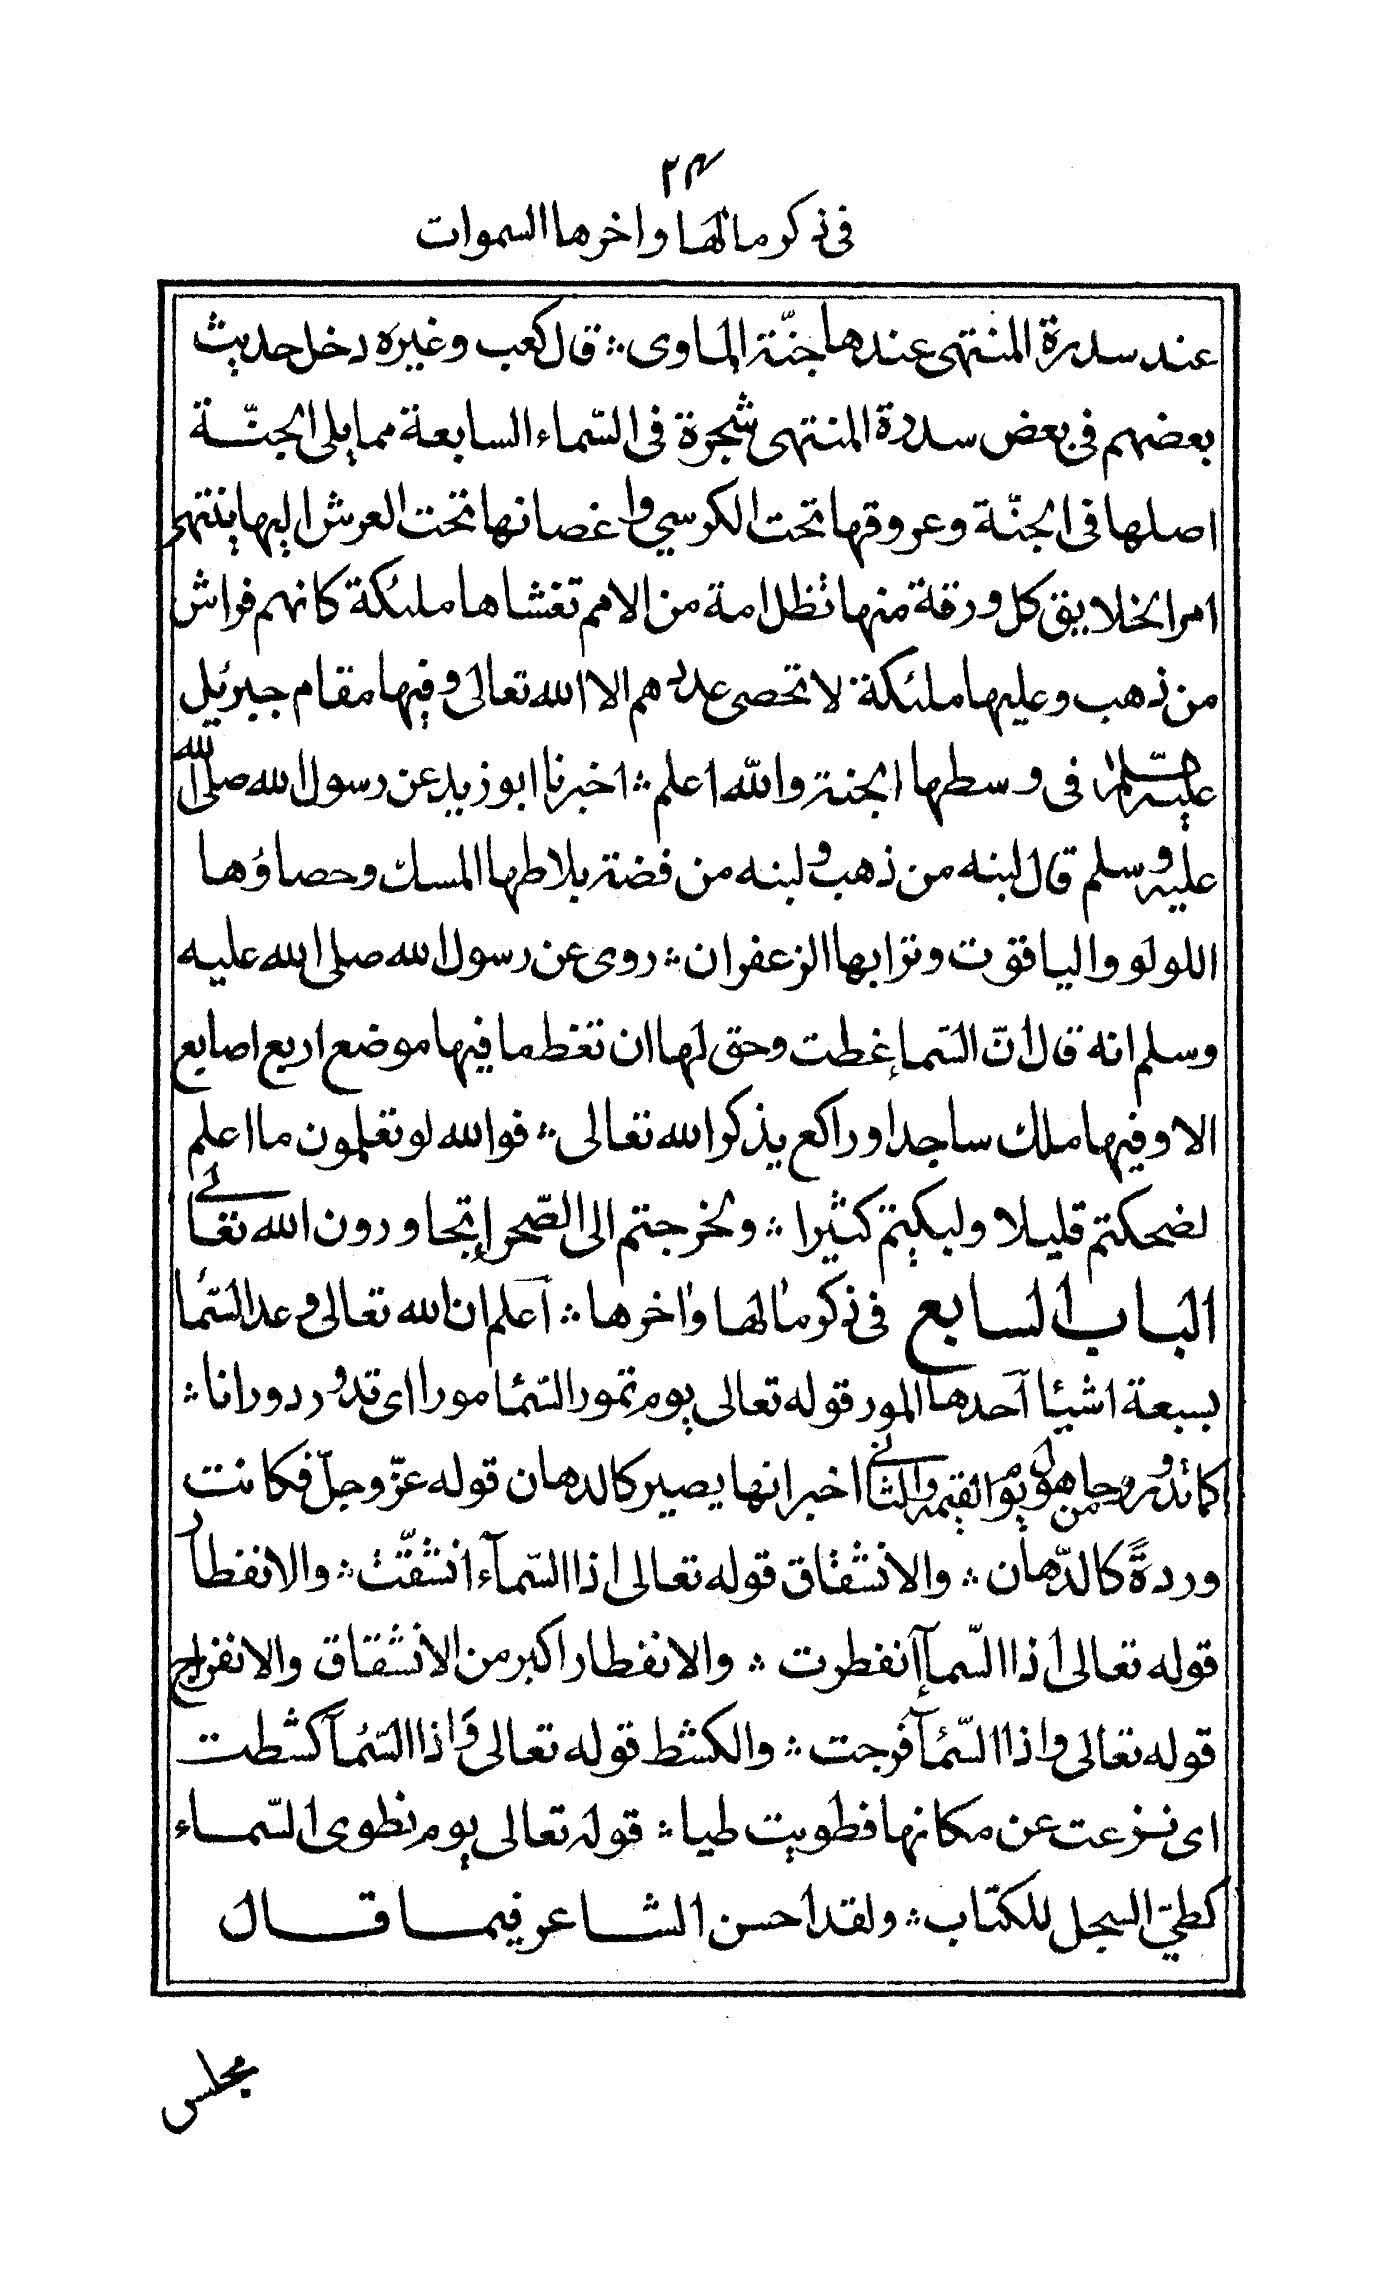 ٢٣
في ذكر مالها واخرها السموات
عند سدرة المنتهى عندها جنّة الماوى ؞ قال كعب وغيره دخل حديث
بعضهم في بعض سدرة المنتهى شجرة في السّماء السابعة مما يلى الجنّة
اصلها في الجنّة وعروقها تحت الكرسي واغصانها تحت العرش اليها ينتهى
امر الخلايق كل ورقة منها تظل امة من الامم تغشاها ملئكة كانهم فراش
من ذهب وعليها ملئكة لا تحصى عددهم الا الله تعالى وفيها مقام جبرئيل
عليه السّلم في وسطها الجنة والله اعلم ؞ اخبرنا ابو زيد عن رسول الله صلى الله
عليه وسلم قال لبنه من ذهب ولبنه من فضة بلاطها المسك وحصاؤها
اللولو والياقوت وترابها الزعفران ؞ روى عن رسول الله صلى الله عليه
وسلم انه قال انّ السّماء غطت وحق لها ان تغط ما فيها موضع اربع اصابع
الا وفيها ملك ساجدا وراكع يذكر الله تعالى ؞ فوالله لو تعلمون ما اعلم
لضحكتم قليلا ولبكيتم كثيرا ؞ ولخرجتم الى الصّحراء تجاورون الله تعالى
الباب السابع في ذكر مالها واخرها ؞ اعلم ان الله تعالى وعد السّما
بسبعة اشيئا احدها المور قوله تعالى يوم تمور السّما مورا اى تدور دورانا ؞
كما تدور وحا من هول يوم القيمة والثاني اخبر انها يصير كالدهان قوله عزّ وجلّ فكانت
وردةً كالدّهان ؞ والانشقاق قوله تعالى اذا السّمآء انشقّت ؞ والانفطار
قوله تعالى اذا السّمآء انفطرت ؞ والانفطار اكبر من الانشقاق والانفراج
قوله تعالى واذا السّمآ فرجت ؞ والكشط قوله تعالى واذا السّمآ كشطت
اى نزعت عن مكانها فطويت طيا ؞ قوله تعالى يوم نطوى السّماء
كطيّ السجل للكتاب ؞ ولقد احسن الشاعر فيما قال
مجلس